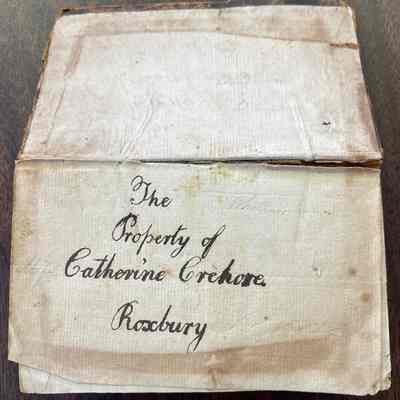 The
Property of
Catherine Crehore.
Roxbury